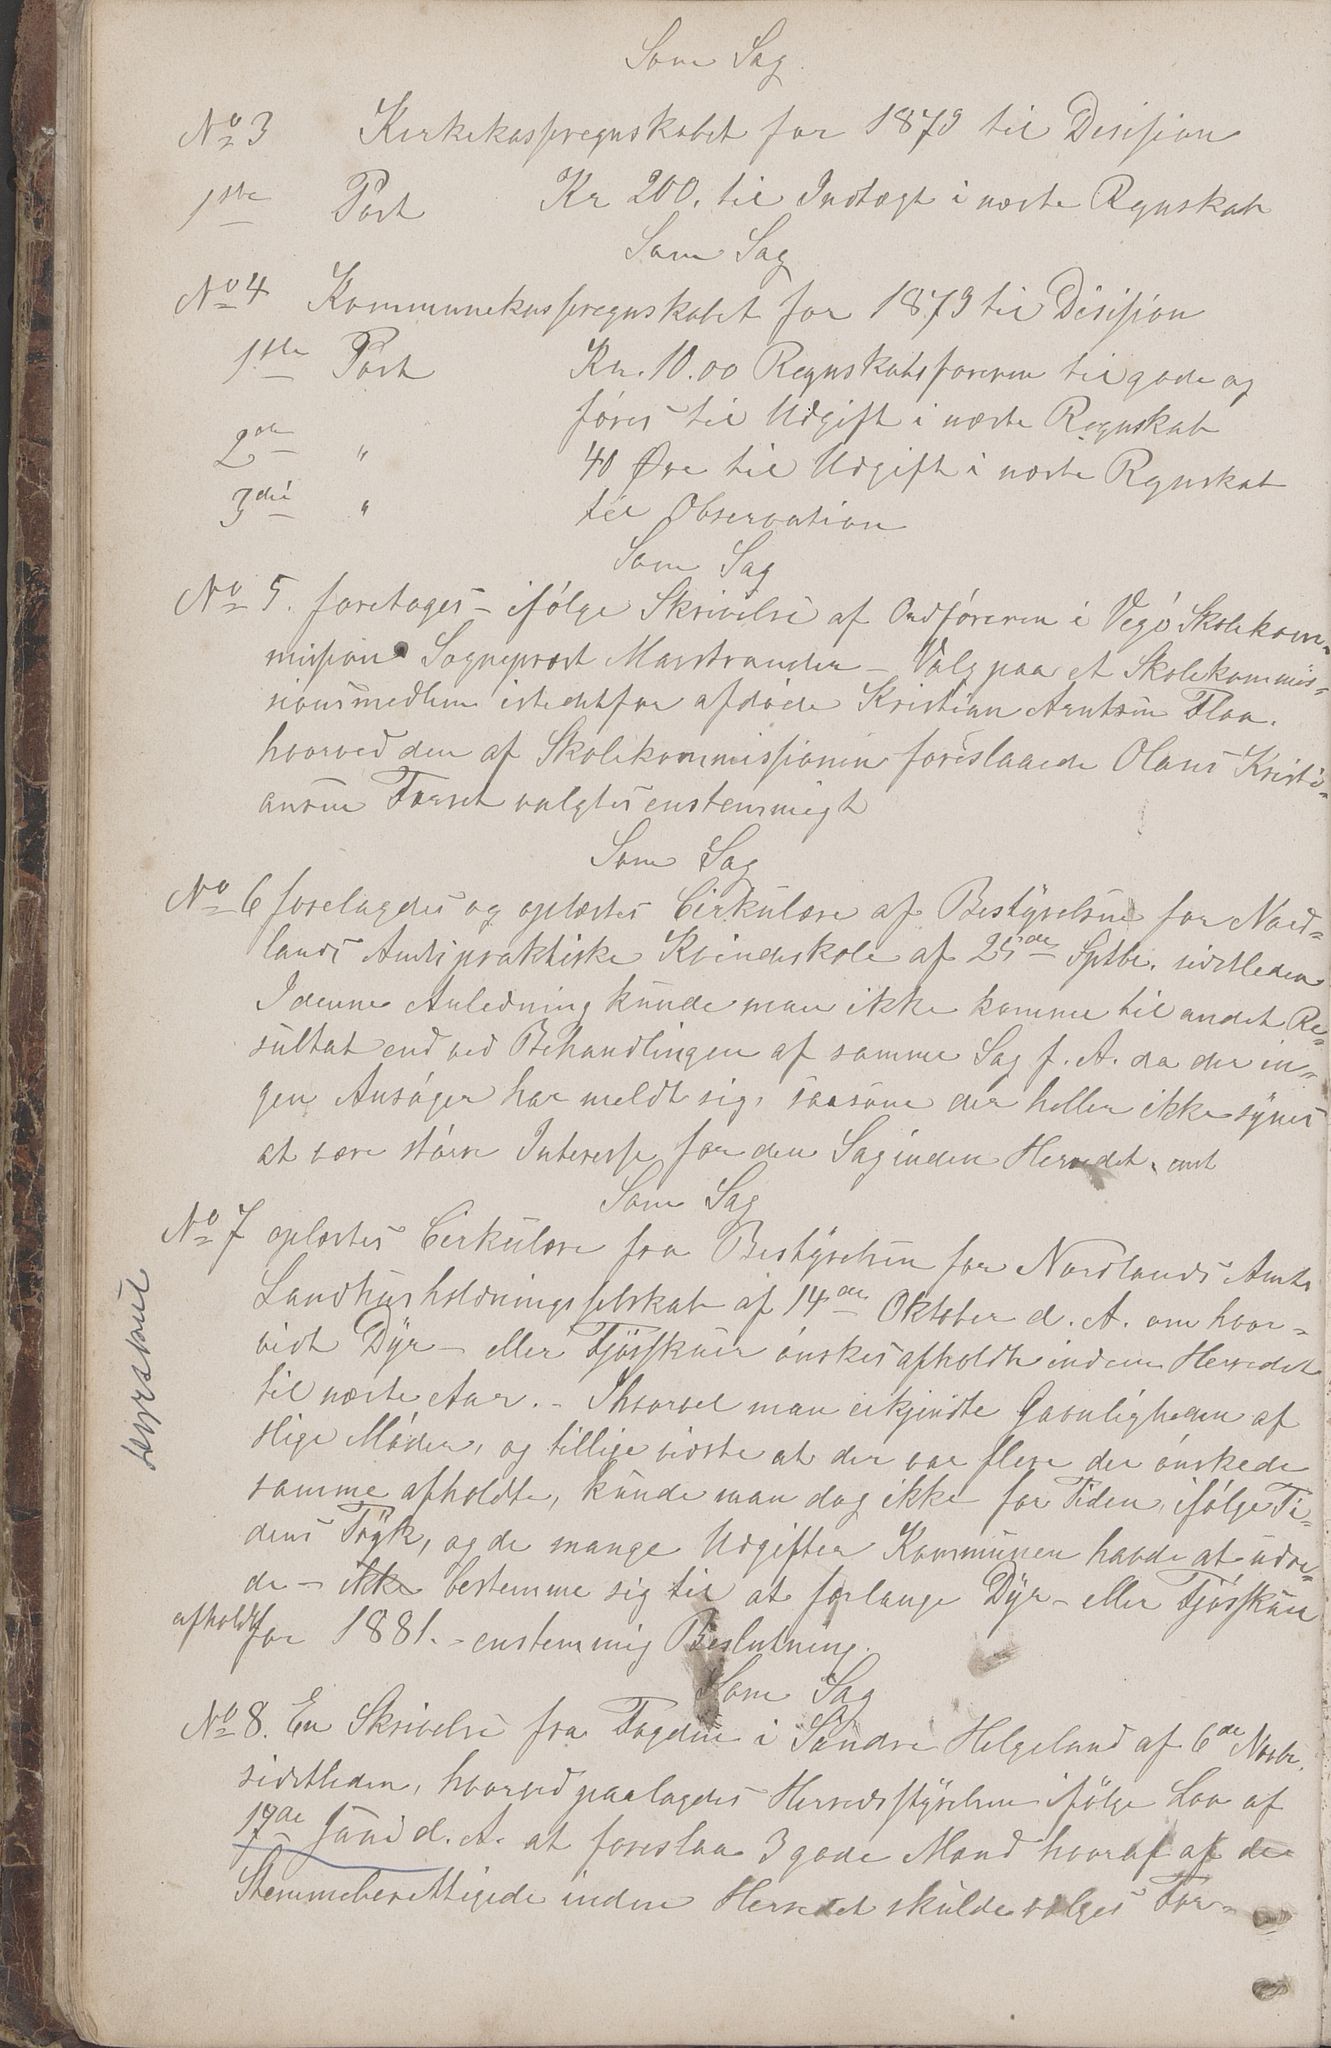 Som Sag.
No 3 Kirkekasseregnskabet for 1879 til Desision
1ste Post Kr 200. til Indtægt i næste Regnskab
Som Sag
No 4 Kommunekasseregnskabet for 1879 til Desision
1ste Post Kr. 10.00 Regnskabsføreren tilgode og
føres til Udgift i næste Regnskab
2den " 40 Øre til Udgift i næste Regnskab
3die " til Observation
Som Sag
No 5. foretoges – ifølge Skrivelse af Ordføreren i Vegø Skolekom-
mission Sogneprest Marstrander – Valg paa et Skolekommis-
sionsmedlem istedetfor afdøde Kristian Arntsen Floa.
hvorved den af Skolekommissionen foreslaaede Olaus Kristi-
ansen Forset valgtes enstemmigt
Som Sag
No 6 forelagdes og oplæstes Cirkulære af Bestyrelsen for Nord-
lands Amts praktiske Kvindeskole af 25de Sptbr. sidstleden
I denne Anledning kunde man ikke komme til andet Re-
sultat end ved Behandlingen af samme Sag f. A. da der in-
gen Ansøger har meldt sig, saasom der heller ikke synes
at være større Interesse for den Sag inden Herredet. enst
Som Sag
No 7 oplæstes Cirkulære fra Bestyrelsen for Nordlands Amts
Landhusholdningsselskab af 14de Oktober d. A. om hvor-
vidt Dyr- eller Fjøsskuer ønskes afholdt inden Herredet
til næste Aar. – Ihvorvel man erkjendte Gavnligheden af
slige Møder, og tillige vidste at der var flere der ønskede
samme afholdte, kunde man dog ikke for Tiden, ifølge Ti-
dens Tryk, og de mange Udgifter Kommunen havde at udre-
de – ikke bestemme sig til at forlange Dyr- eller Fjøsskue
afholdt for 1881. – enstemmig Beslutning.
Som Sag
No 8. En Skrivelse fra Fogden i Søndre Helgeland af 6de Novbr.
sidstleden, hvorved paalagdes Herredsstyrelsen ifølge Lov af
17de Juni d. A. at foreslaa 3 gode Mænd hvoraf af de
Stemmeberettigede inden Herredet skulde vælges For-